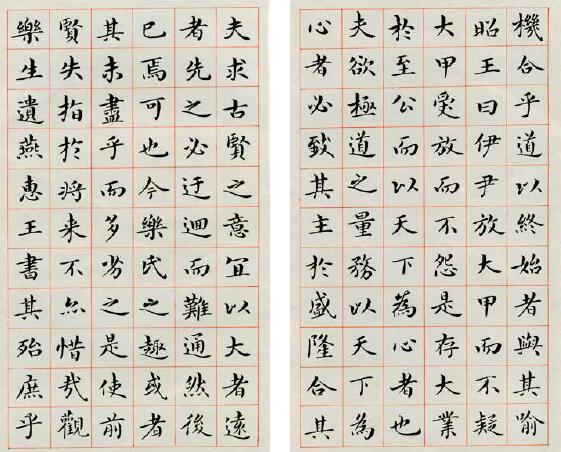 夫求古賢之意冝以大者遠
者先之必迂迴而難通然後
已焉可也今樂氏之趣或者
其未盡乎而多劣之是使前
賢失指於將来不亦惜哉觀
樂生遺燕惠王書其殆庶乎
機合乎道以終始者與其喻
昭王曰伊尹放大甲而不疑
大甲受放而不怨是存大業
於至公而以天下為心者也
夫欲極道之量務以天下為
心者必致其主於盛隆合其